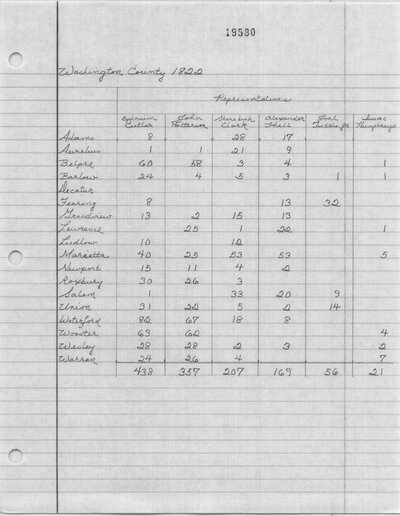 19580
Washington County 1822
Representatives
Ephraim Cutler John Patterson Clark Alexander Hall Joel Tuttle, Jr. Isaac Humphreys
Adams 8 28 17
Aurelius 1 1 21 9
Belpre 60 58 3 4 1
Barlow 24 4 5 3 1 1
Decatur
Fearing 8 13 32
Grandview 13 2 15 13
Lawrence 25 1 22 1
Ludlow 10 12
Marietta 40 25 53 53 5
Newport 15 11 4 2
Roxbury 30 26 3
Salem 1 33 20 9
Union 31 22 5 2 14
Waterford 82 67 18 8
Wooster 63 62 4
Wesley 28 28 2 3 2
Warren 24 26 4 7
438 357 207 169 56 21